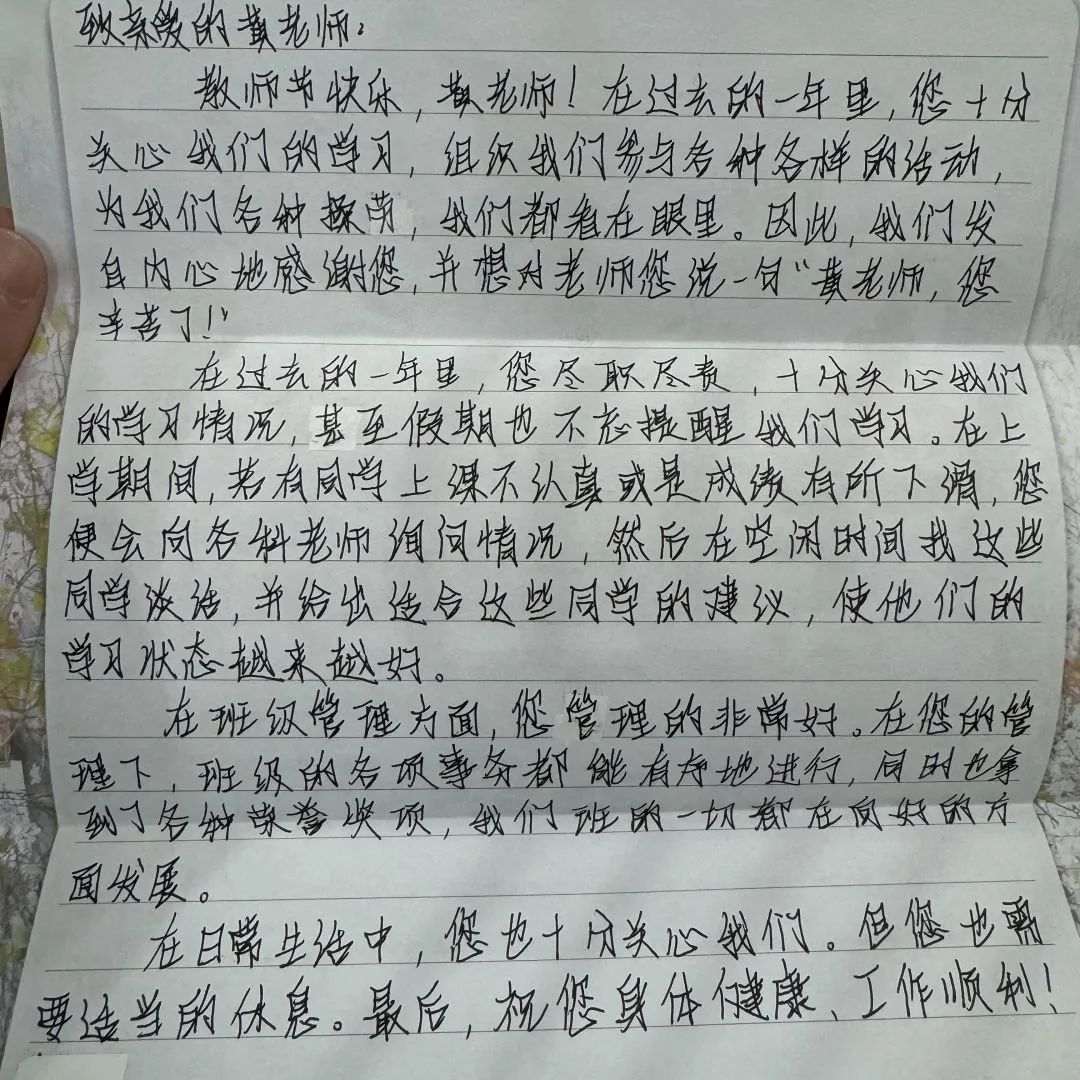 致亲爱的黄老师：
教师节快乐，黄老师！在过去的一年里，您十分
关心我们的学习，组织我们参与各种各样的活动，
为我们各种操劳，我们都看在眼里。因此，我们发
自内心地感谢您，并想对老师您说一句“黄老师，您
辛苦了！”
在过去的一年里，您尽职尽责，十分关心我们
的学习情况，甚至假期也不忘提醒我们学习。在上
学期间，若有同学上课不认真或是成绩有所下滑，您
便会向各科老师询问情况，然后在空闲时间找这些
同学谈话，并给出适合这些同学的建议，使他们的
学习状态越来越好。
在班级管理方面，您管理的非常好。在您的管
理下，班级的各项事务都能有序地进行，同时也拿
到了各种荣誉奖项，我们班的一切都在向好的方
面发展。
在日常生活中，您也十分关心我们。但您也需
要适当的休息。最后，祝您身体健康、工作顺利！